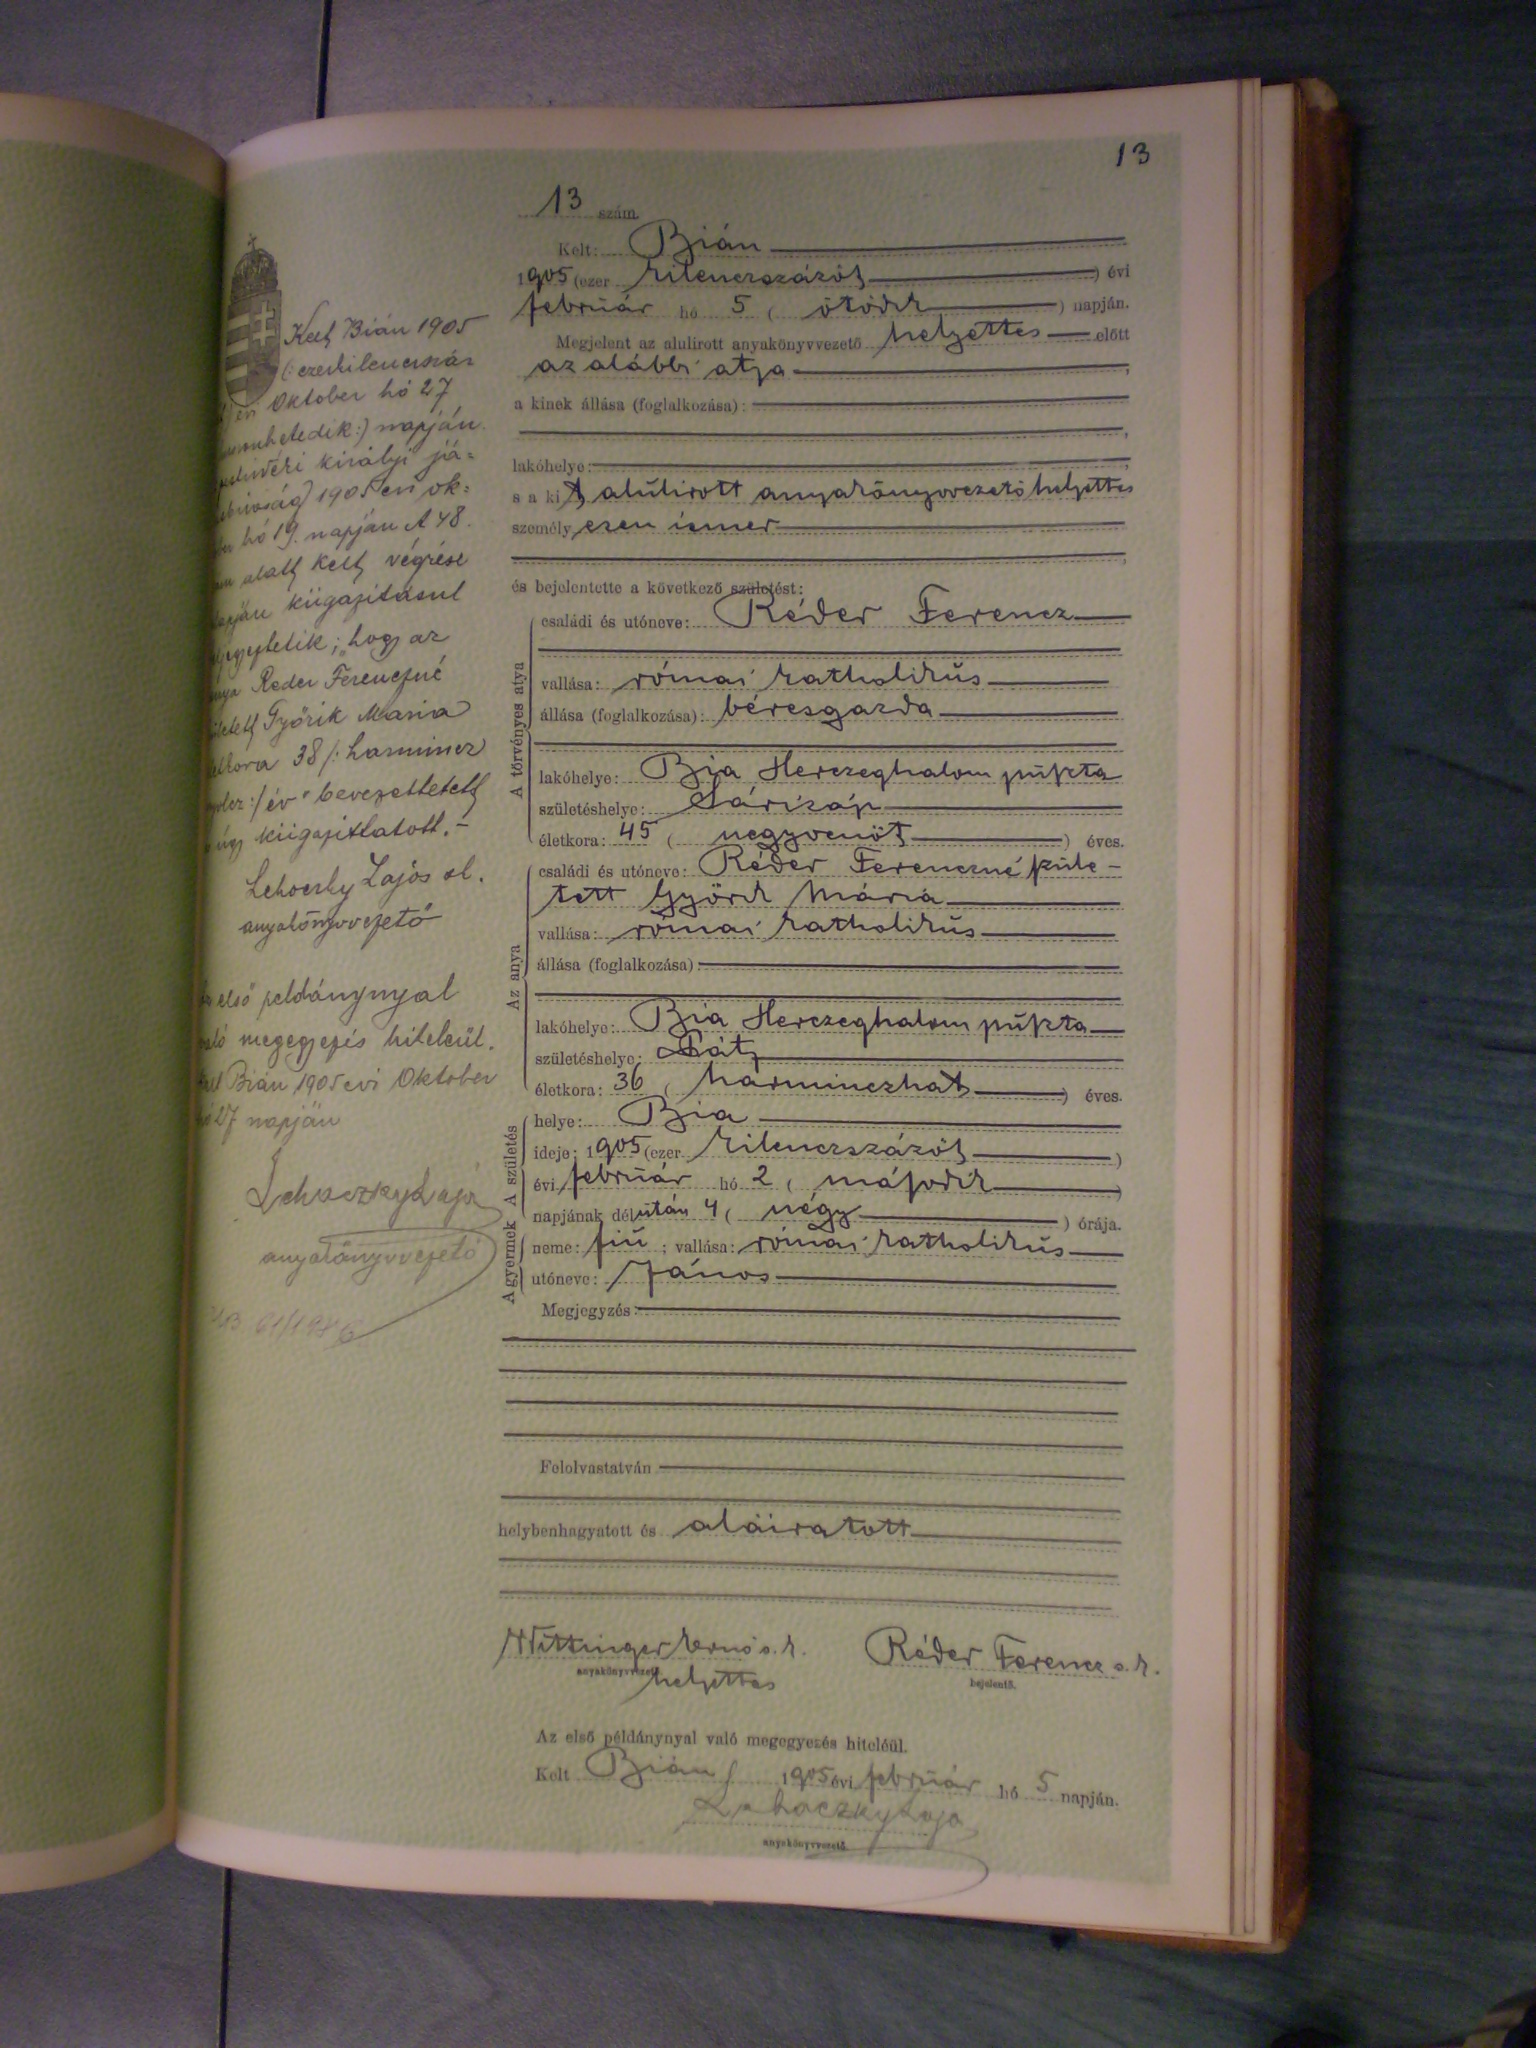 13
13 szám.
Kelt: Bián
1905 (ezer kilenczszázöt ) évi
február hó 5 ( ötödik ) napján.
Megjelent az alulírott anyakönyvvezető helyettes előtt
az alábbi atya ,
a kinek állása (foglalkozása):
lakóhelye:
s a kit alulirott anyakönyvvezető helyettes
személyesen ismer
és bejelentette a következő születést:
A törvényes atya
családi és utóneve: Réder Ferencz
vallása: római katholikus
állása (foglalkozása): béresgazda
lakóhelye: Bia Herczeghalom puszta
születéshelye: Sárisáp
életkora: 45 ( negyvenöt ) éves.
Az anya
családi és utóneve: Réder Ferenczné szüle-
tett Győrik Mária
vallása: római katholikus
állása (foglalkozása):
lakóhelye: Bia Herczeghalom puszta
születéshelye:
életkora: 36 ( harminczhat ) éves.
A születés
helye: Bia
ideje: 1905 (ezer kilenczszázöt )
évi február hó 2 ( második )
napjának délután 4 ( négy ) órája.
A gyermek
neme: fiú ; vallása: római katholikus
utóneve: János
Megjegyzés:
Felolvastatván
helybenhagyatott és aláiratott
Wittinger Ernő s. k.
anyakönyvvezető
helyettes
Réder Ferencz s. k.
bejelentő.
Az első példánynyal való megegyezés hiteléül.
Kelt Bián 1905 évi február hó 5 napján.
Lehoczky Lajos
anyakönyvvezető
Kelt Bián 1905
(: ezerkilenczszáz
évi Oktober hó 27
napján
királyi já=
1905 évi ok=
hó 19. napján A 48.
alatt kelt végzése
kiigazitásul
hogy az
Reder Ferenczné
Győrik Maria
38 /: harmincz
:/ év" bevezettetett
úgy kiigazittatott. -
Lehoczky Lajos al.
anyakönyvvezető
első példánynyal
való megegyezés hiteléül.
Kelt Bián 1905 évi Oktober
hó 27 napján
Lehoczky Lajos
anyakönyvvezető